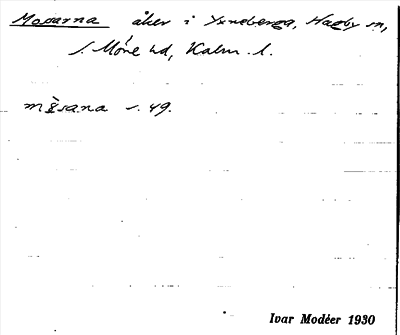 Mosarna åker i Ysneberga, Hagby sn,
S. Möre hd, Kalm. l.
s. 49.
Ivar Modéer 1930